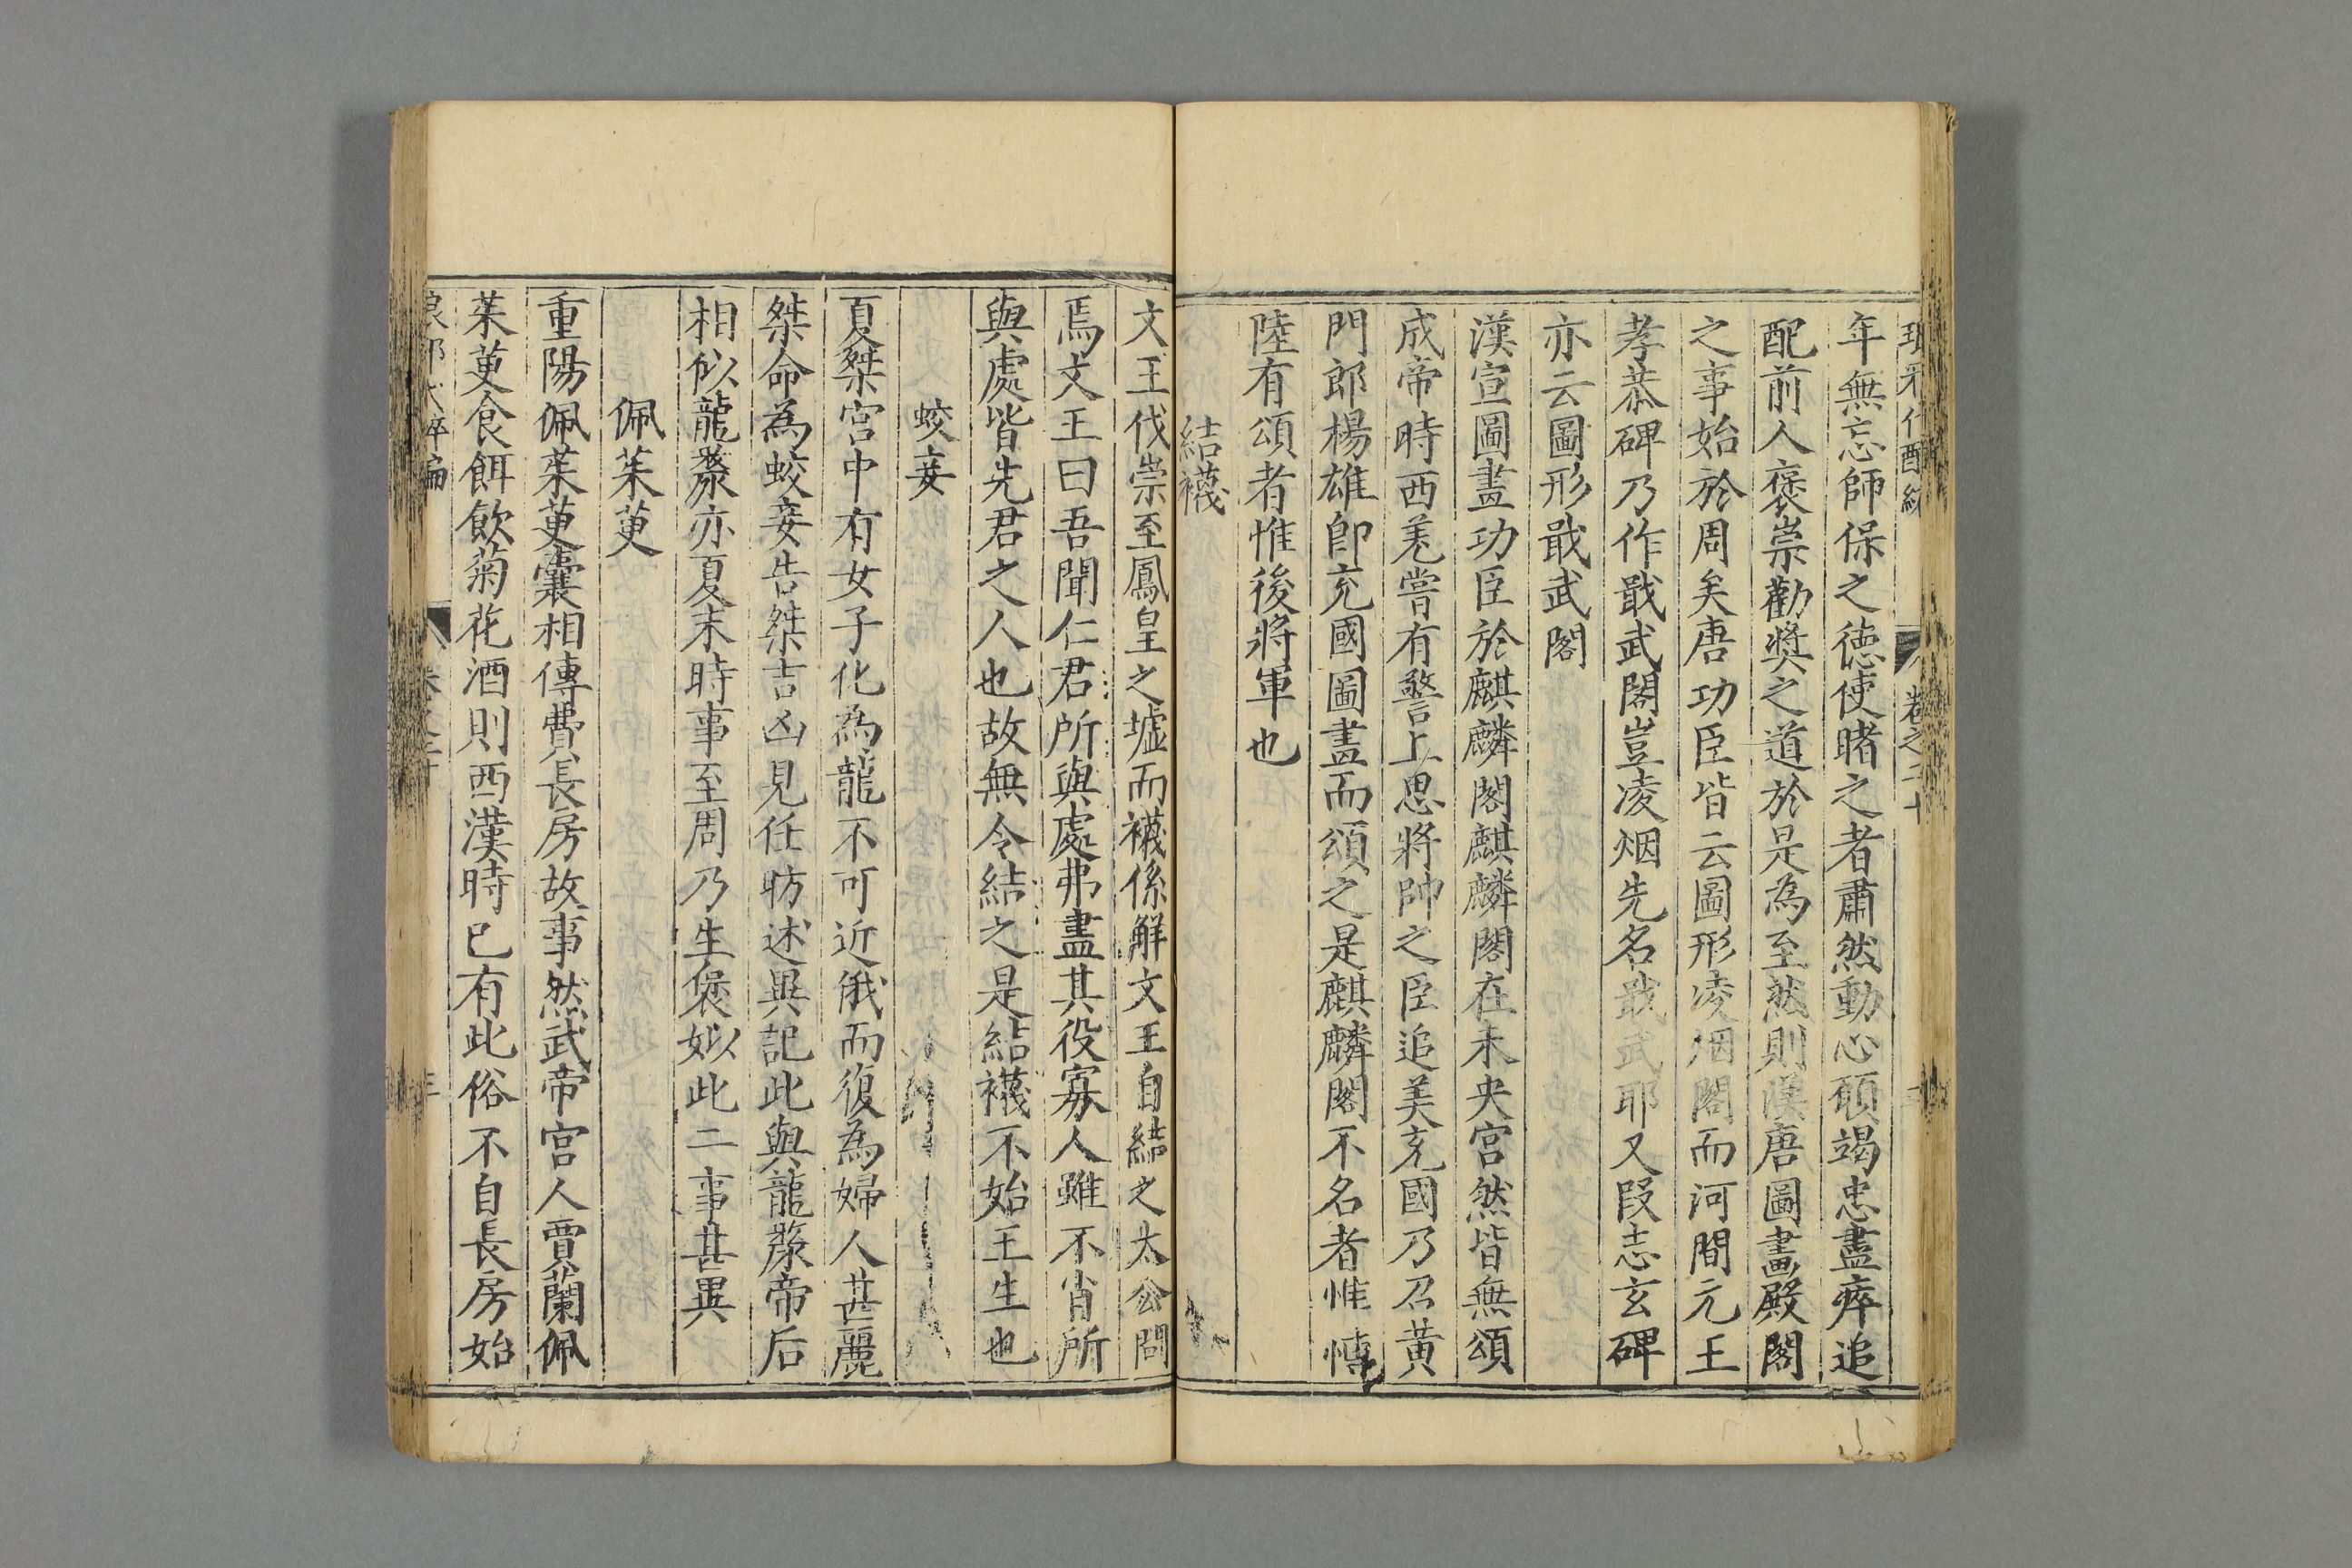 卷之二十
年無忘師保之德使睹之者肅然動心碩竭忠盡瘁追
配前人褒崇勸獎之道於是為至然則漢唐圖畫殿閣
之事始於周矣唐功臣皆云圖形凌烟閣而河間元王
孝恭碑乃作戢武閣豈凌烟先名戢武耶又段志玄碑
亦云圖形戢武閣
漢宣圖畫功臣於麒麟閣麒麟閣在未央宮然皆無頌
成帝時西羌嘗有警上思將帥之臣追美充國乃召黃
門郎楊雄卽充國圖畫而頌之是麒麟閣不名者惟博
陸有頌者惟後將軍也
結襪
文王伐崇至鳳皇之墟而襪係解文王自結之太公問
焉文王曰吾聞仁君所與處弗盡其役寡人雖不肖所
與處皆先君之人也故無令結之是結襪不始王生也
蛟妾
夏桀宮中有女子化為龍不可近俄而復為婦人甚麗
桀命為蛟妾告桀吉凶見任昉述異記此與龍漦帝后
相似龍漦亦夏末時事至周乃生褒姒此二事甚異
佩茱萸
重陽佩茱萸囊相傳費長房故事然武帝宮人賈蘭佩
茱萸食餌飲菊花酒則西漢時已有此俗不自長房始